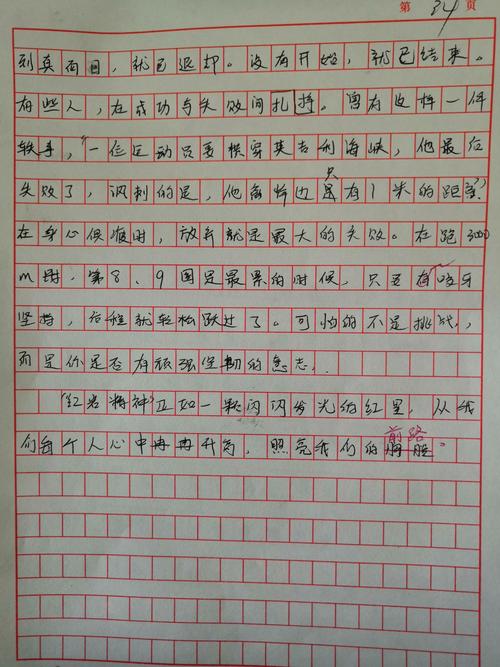 第 34 页
到真面目，就已退却。没有开始，就已结束。
有些人，在成功与失败间扎挣。曾有这样一件
轶事，"一位运动员要横穿英吉利海峡，他最后
失败了，讽刺的是，他离岸边只有1米的距离"
在身心疲惫时，放弃就是最大的失败。在跑3000
m时，第8、9圈是最累的时候，只要有咬牙
坚持，后程就轻松跃过了。可怕的不是挑战，
而是你是否有顽强坚韧的意志。
"红岩精神"正如一颗闪闪发光的红星，从我
们每个人心中冉冉升高，照亮我们的前路。